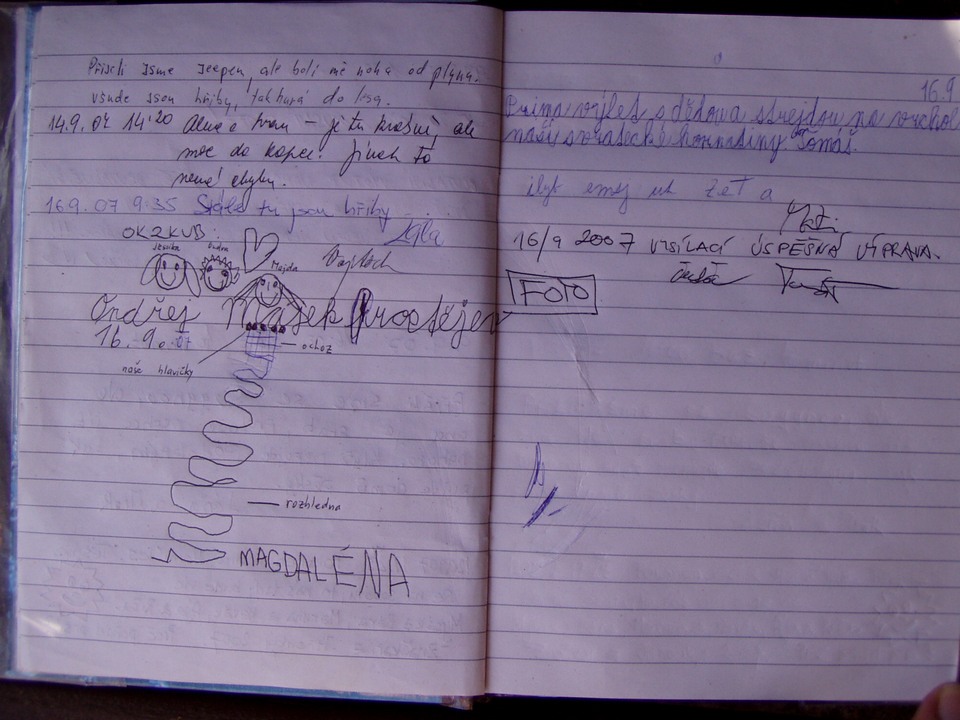 Přišli jsme jeepem, ale bolí mě noha od plynu.
všude jsou hřiby, tak hurá do lesa.
14.9.07 14:20 a – je tu krásně, ale
moc do kopce! Jinak to
nemá chybu.
16.9.07 9:35 Stále tu jsou hřiby ....
OK2KUB
Majda
Vojtěch
Ondřej Mašek Prostějov
16.9.07
ochoz
naše hlavičky
rozhledna
MAGDALÉNA
16.9
Prima výlet s dědou a strejdou na vrchol
naší svratecké hornatiny Tomáš.
16/9 2007 VYSÍLACÍ ÚSPĚŠNÁ VÝPRAVA.
FOTO